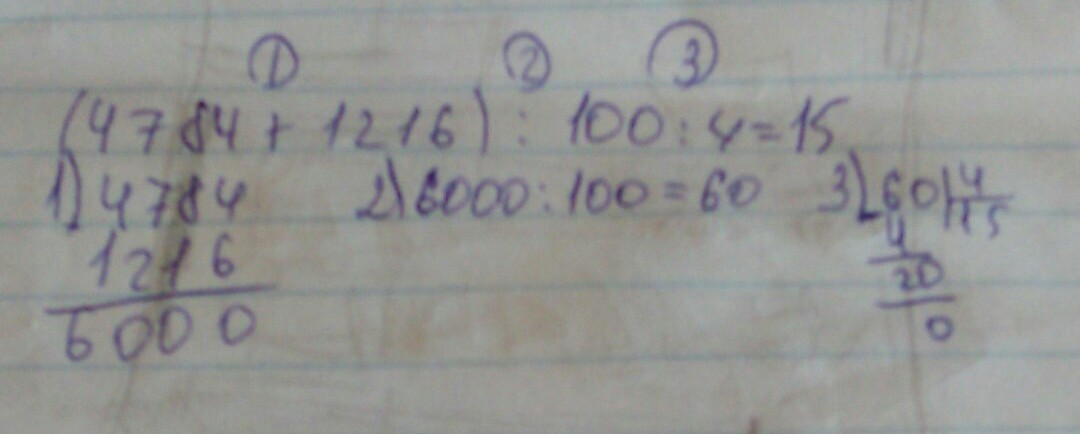 ① ② ③
(4784+1216):100:4=15
1) 4784 2) 6000:100=60 3) 60|4
1216 4 15
6000 20
0